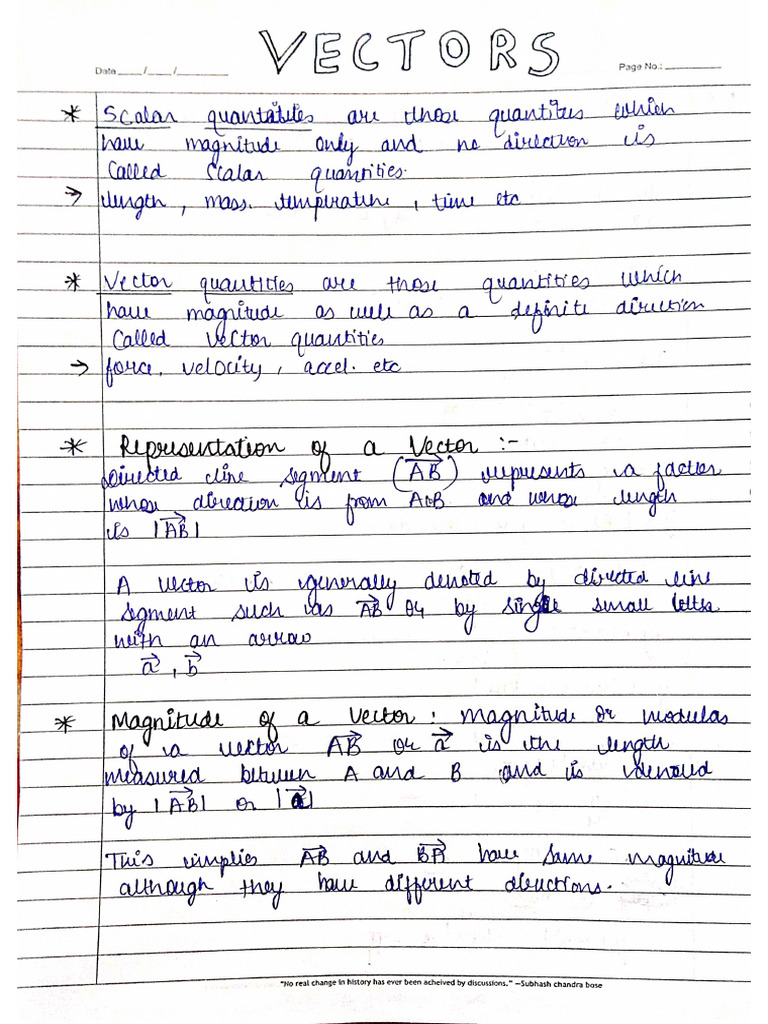 VECTORS
Date ____/____/________
Page No.: ________
* Scalar quantatites are those quantites which
have magnitude only and no direction is
Called Scalar quantities.
→ length, mass. temperature, time etc
* Vector quantities are those quantities which
have magnitude as well as a definite direction
Called Vector quantities
→ force, velocity, accel. etc
* Representation of a Vector :-
Directed line segment (AB→) represents a factor
whose direction is from A to B and whose length
is |AB→|
A vector is generally denoted by directed line
segment such as AB→ or by single small letter
with an arrow
a→, b→
* Magnitude of a Vector : Magnitude or modulas
of a vector AB→ or a→ is the length
measured between A and B and is denoted
by |AB→| or |a→|
This implies AB→ and BA→ have same magnitude
although they have different directions.
"No real change in history has ever been acheived by discussions." –Subhash chandra bose